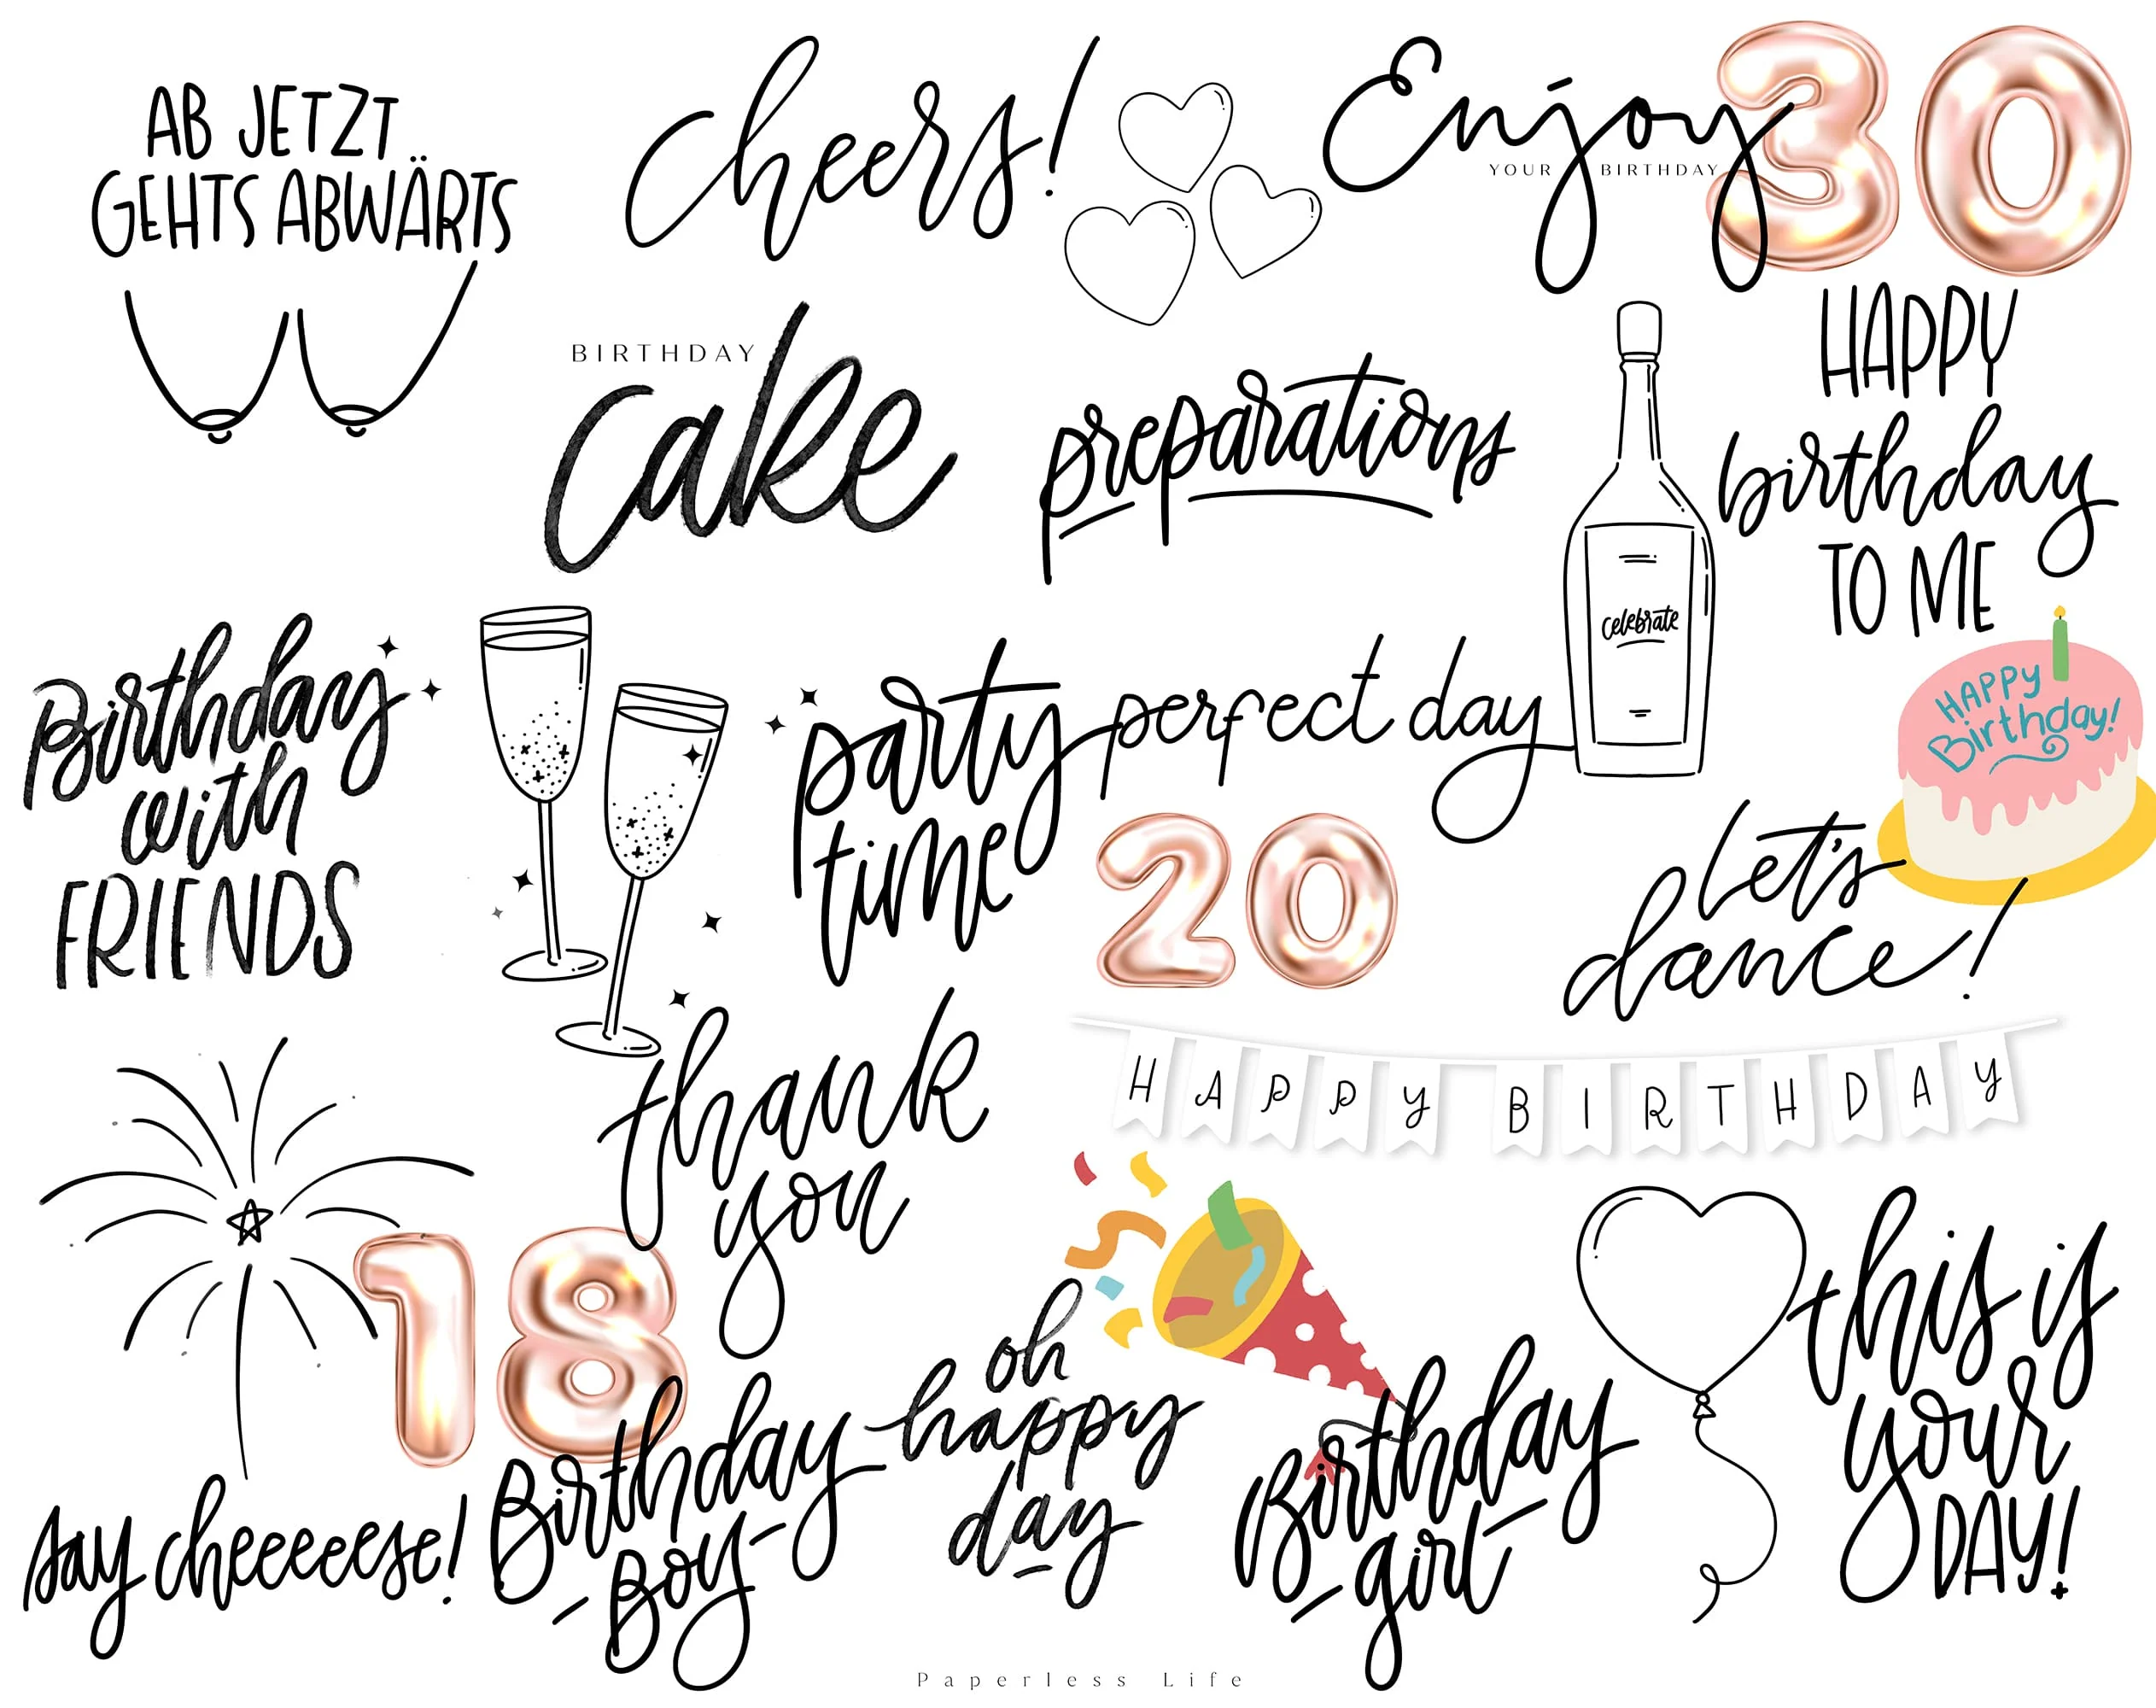 AB JETZT
GEHTS ABWÄRTS
cheers!
Enjoy
YOUR BIRTHDAY
30
BIRTHDAY
cake
preparations
celebrate
HAPPY
birthday
TO ME
Birthday
with
FRIENDS
party
time
perfect day
20
HAPPY
Birthday!
let's
dance!
thank
you
HAPPY BIRTHDAY
18
say cheeeeese!
Birthday
Boy
oh
happy
day
Birthday
girl
this is
your
DAY!
Paperless Life